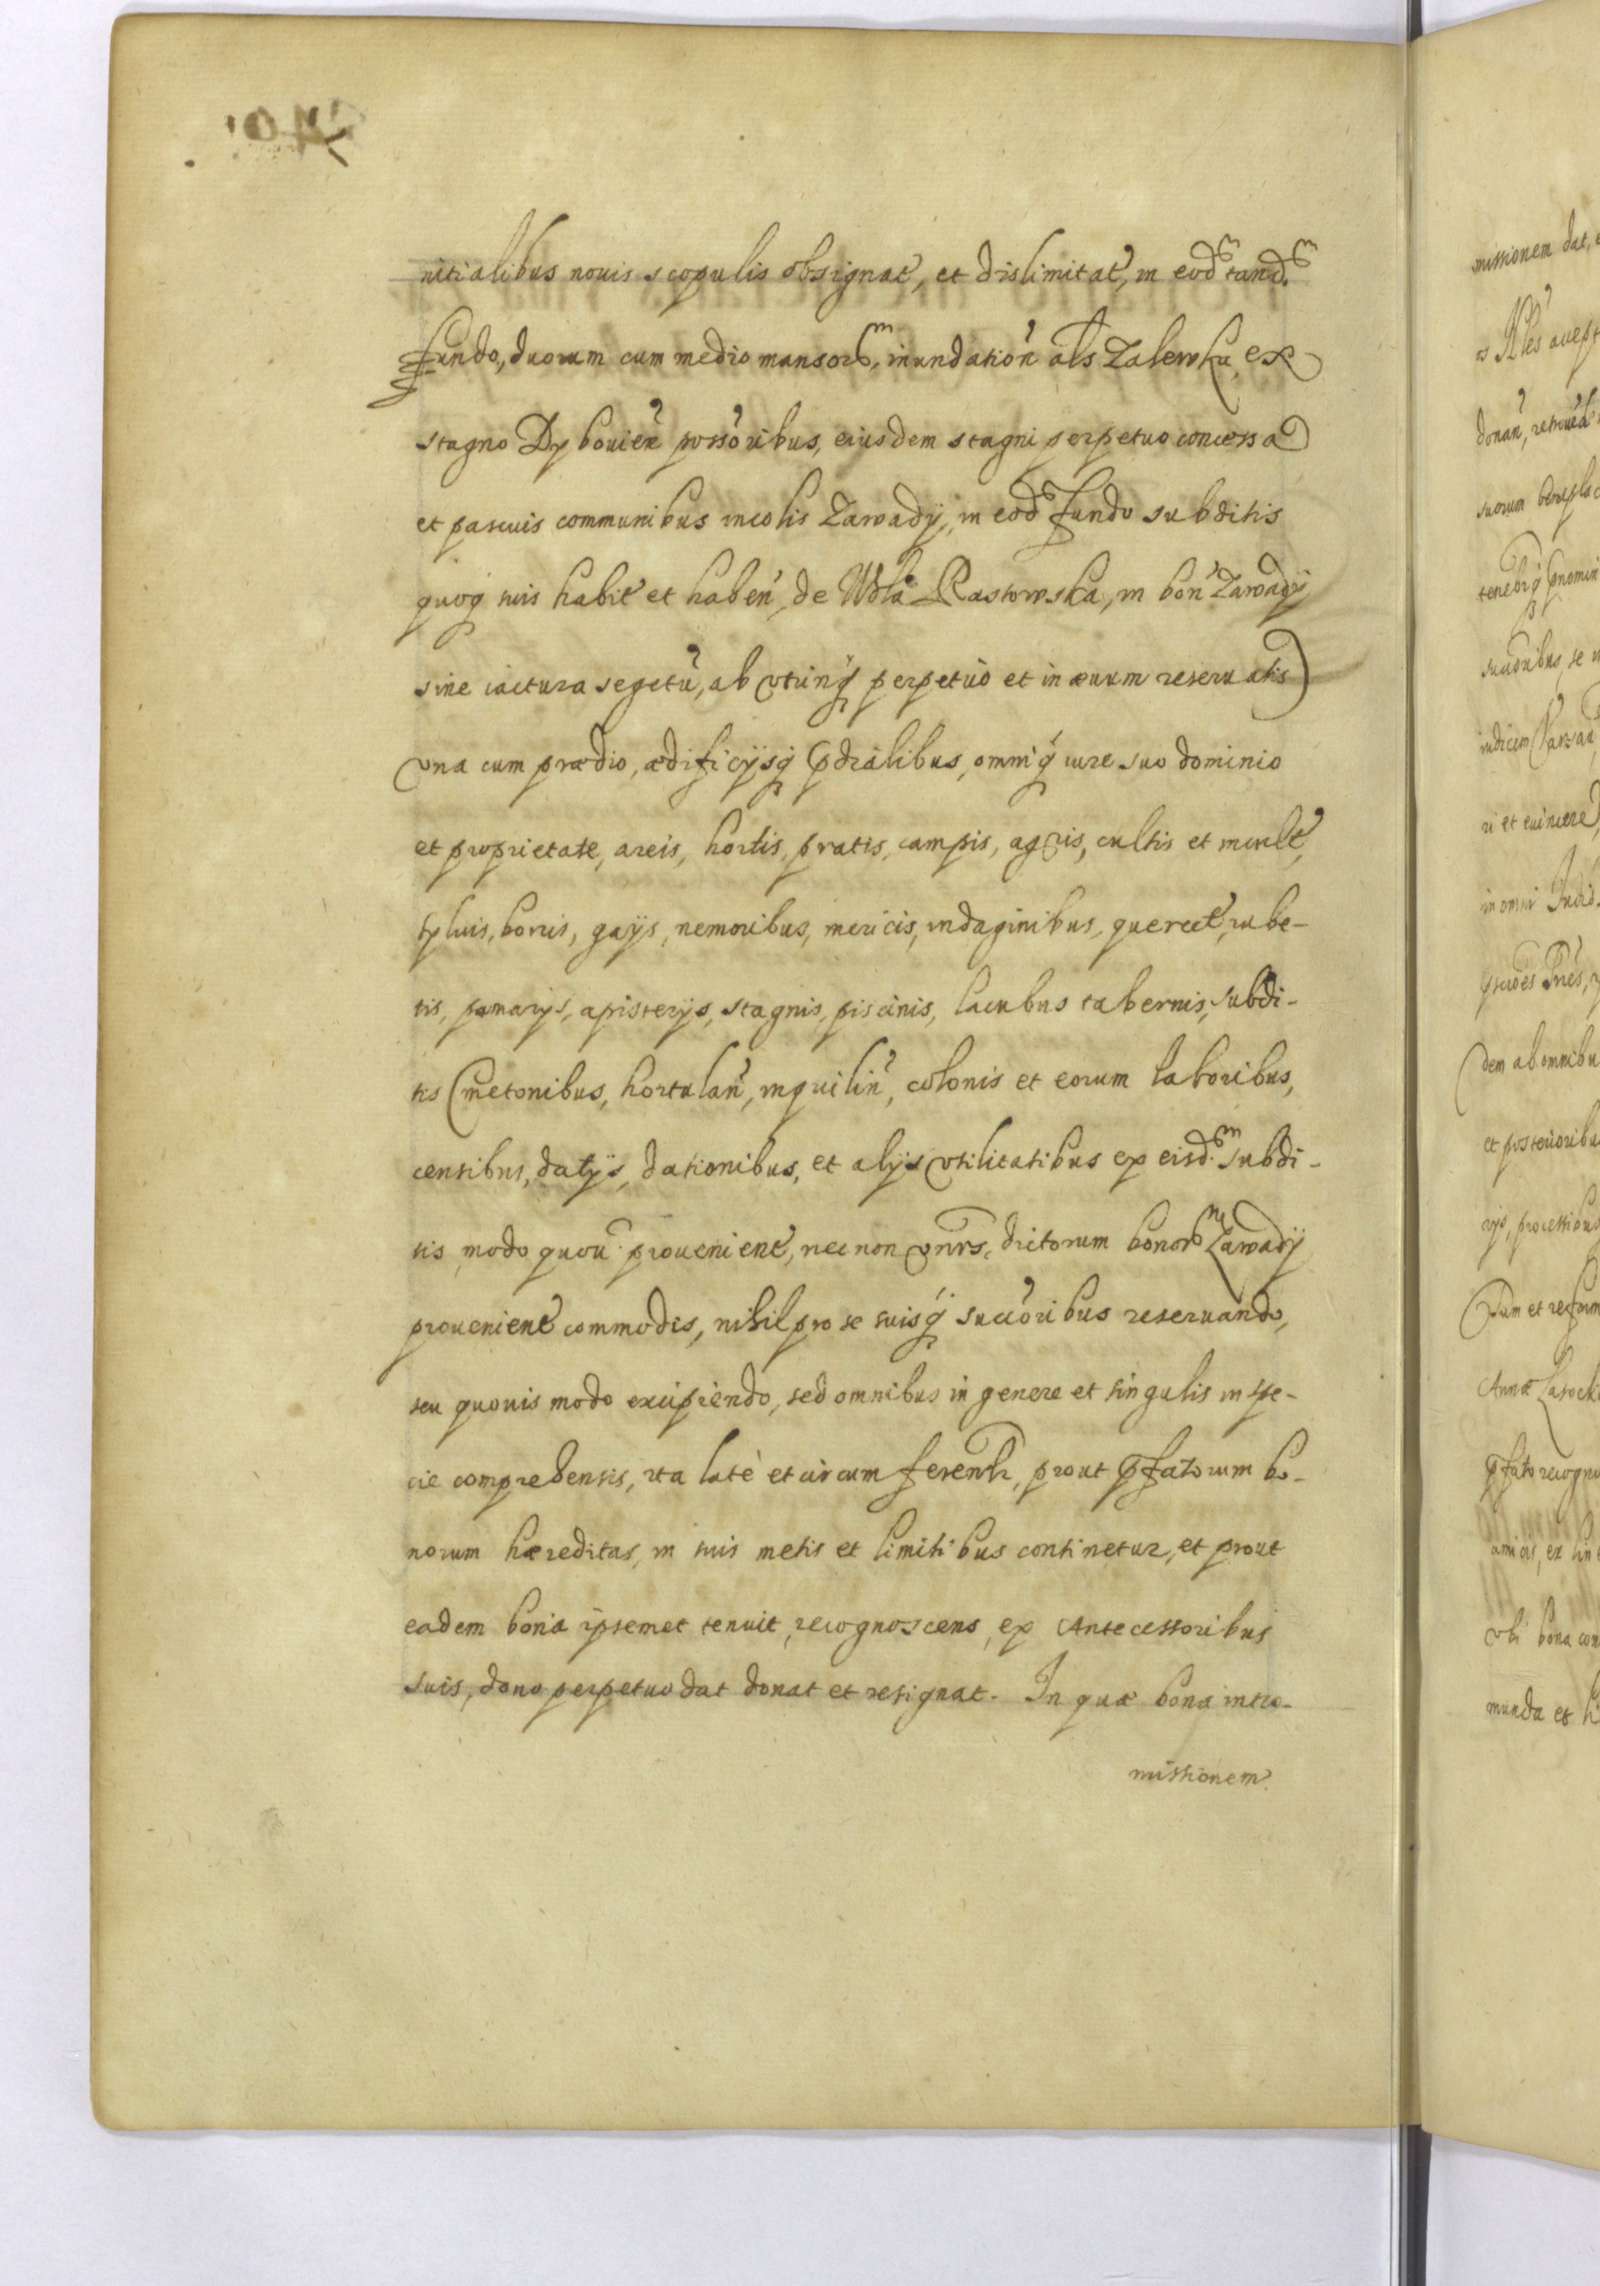 nitialibus nouis scopulis obsignat, et dislimitat, in eod tandem
fundo, duorum cum medio mansorum, inundation als Zalewku ex
stagno Dybouien possoribus, eiusdem stagni perpetuo concessa
et pascuis communibus incolis Zawady, in eod fundo subditis
quoq suis habit et haben, de Wola Rastowska, in bon Zawady
sine iactura segetu, ab utrinq perpetuo et in æuum reseruatis
Una cum prædio, ædificijsq prdialibus, omniq iure suo dominio
et proprietate, areis, hortis, pratis, campis, agris, cultis et incult,
syluis, borris, gaijs, nemoribus, mericis, indaginibus, quercet, rube-
tis, pomarijs, apisterijs, stagnis, piscinis, lacubus tabernis, subdi-
tis Cmetonibus, hortulan, inquilin, colonis et eorum laboribus,
censibus, datijs, dationibus, et alijs utilitatibus ex eisdem subdi-
tis modo quou prouenient, nec non unrs, dictorum bonorum Zawady
prouenient commodis, nihil pro se suisq succoribus reseruando,
seu quouis modo excipiendo, sed omnibus in genere et singulis in spe-
cie comprehensis, ita latè et circumferentr, prout prfatorum bo-
norum hæreditas, in suis metis et limitibus continetur, et prout
eadem bona ipsemet tenuit, recognoscens, ex Antecessoribus
suis, dono perpetuo dat donat et resignat. In quæ bona intro-
missionem.
missionem dat, e
donan,
suorum
se
iudicem
ri et euincere,
in omni
dem ab omnibu
et posterioribu
rijs, processibus
Annæ Lasocki
prfato recogno
amicis, ex
ubi bona con
munda et li